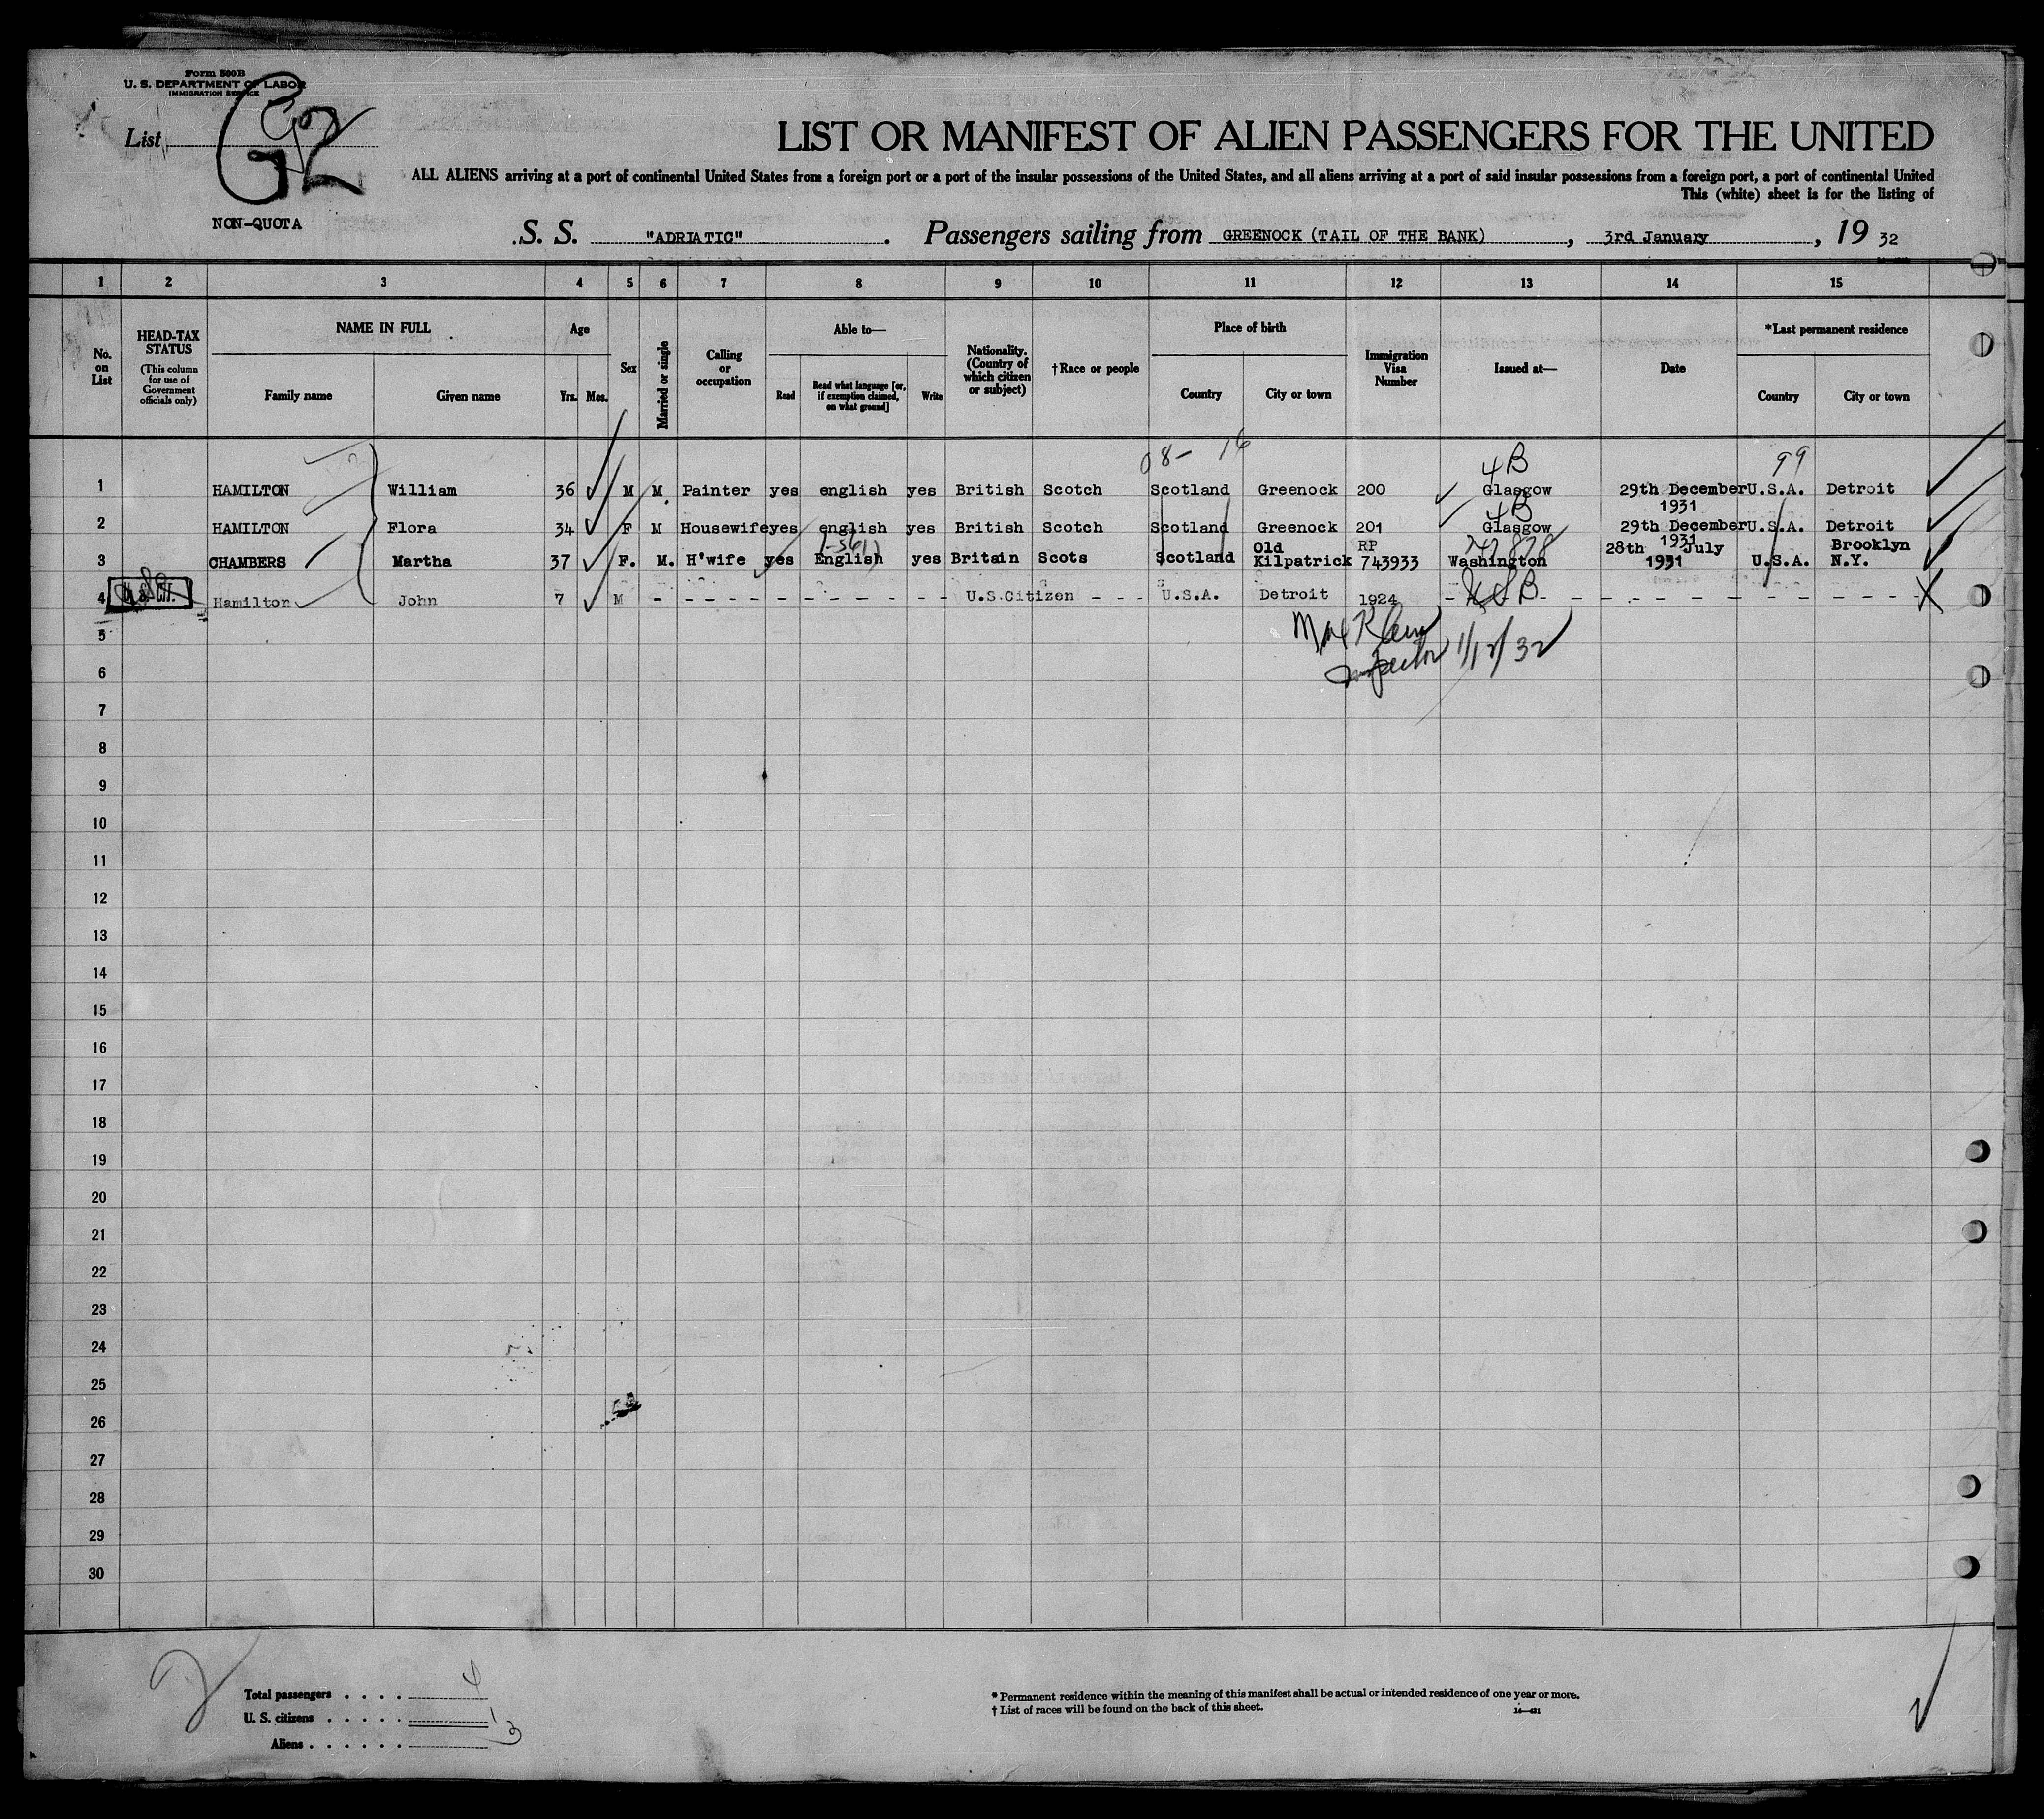 Form 500B
U. S. DEPARTMENT OF LABOR
IMMIGRATION SERVICE
List
G2
NON-QUOTA
LIST OR MANIFEST OF ALIEN PASSENGERS FOR THE UNITED
ALL ALIENS arriving at a port of continental United States from a foreign port or a port of the insular possessions of the United States, and all aliens arriving at a port of said insular possessions from a foreign port, a port of continental United
This (white) sheet is for the listing of
S. S. "ADRIATIC" . Passengers sailing from GREENOCK (TAIL OF THE BANK) , 3rd January , 19 32
1 2 3 4 5 6 7 8 9 10 11 12 13 14 15
No. on List
HEAD-TAX STATUS
(This column for use of Government officials only)
NAME IN FULL
Family name Given name
Age
Yrs. Mos.
Sex
Married or single
Calling or occupation
Able to—
Read Read what language [or, if exemption claimed, on what ground] Write
Nationality. (Country of which citizen or subject)
†Race or people
Place of birth
Country City or town
Immigration Visa Number
Issued at—
Date
*Last permanent residence
Country City or town
08- 16 4B 99
1 HAMILTON William 36 M M. Painter yes english yes British Scotch Scotland Greenock 200 Glasgow 29th December 1931 U.S.A. Detroit
4B
2 HAMILTON Flora 34 F M Housewife yes english yes British Scotch Scotland Greenock 201 Glasgow 29th December 1931 U.S.A. Detroit
3 CHAMBERS Martha 37 F. M. H'wife yes English yes Britain Scots Scotland Old Kilpatrick RP 743933 Washington 28th July 1931 U.S.A. Brooklyn N.Y.
4 U.S. CIT. Hamilton John 7 M - - - - - - - - - - - - U.S.Citizen - - - U.S.A. Detroit 1924 - USB - - - - - - - - - - - - -
5
Inspector 1/12/32
6
7
8
9
10
11
12
13
14
15
16
17
18
19
20
21
22
23
24
25
26
27
28
29
30
Total passengers . . . . 4
U. S. citizens . . . . . 1
Aliens . . . . . . 3
* Permanent residence within the meaning of this manifest shall be actual or intended residence of one year or more.
† List of races will be found on the back of this sheet.
14—421